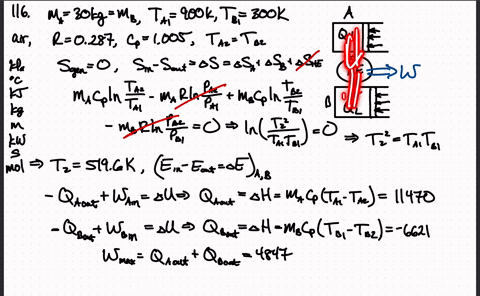 116. m_A=30kg=m_B, T_A1=900K, T_B1=300K
A
air, R=0.287, Cp=1.005, T_A2=T_B2
Q_H
kPa Sgen=0, Sin-Sout=ΔS=ΔS_A+ΔS_B+ΔS_HE
W
°C
kJ m_A Cp ln T_A2/T_A1 - m_A R ln P_A2/P_A1 + m_B Cp ln T_B2/T_B1
B Q_L
kg
m - m_B R ln P_B2/P_B1 = 0 ⇒ ln(T_2²/T_A1T_B1) = 0 ⇒ T_2²=T_A1T_B1
kW
s
mol ⇒ T_2=519.6K, (Ein-Eout=ΔE)_A,B
-Q_Aout+W_Ain=ΔU ⇒ Q_Aout=ΔH=m_A Cp(T_A1-T_A2)=11470
-Q_Bout+W_Bin=ΔU ⇒ Q_Bout=ΔH=m_B Cp(T_B1-T_B2)=-6621
Wmax=Q_Aout+Q_Bout=4847